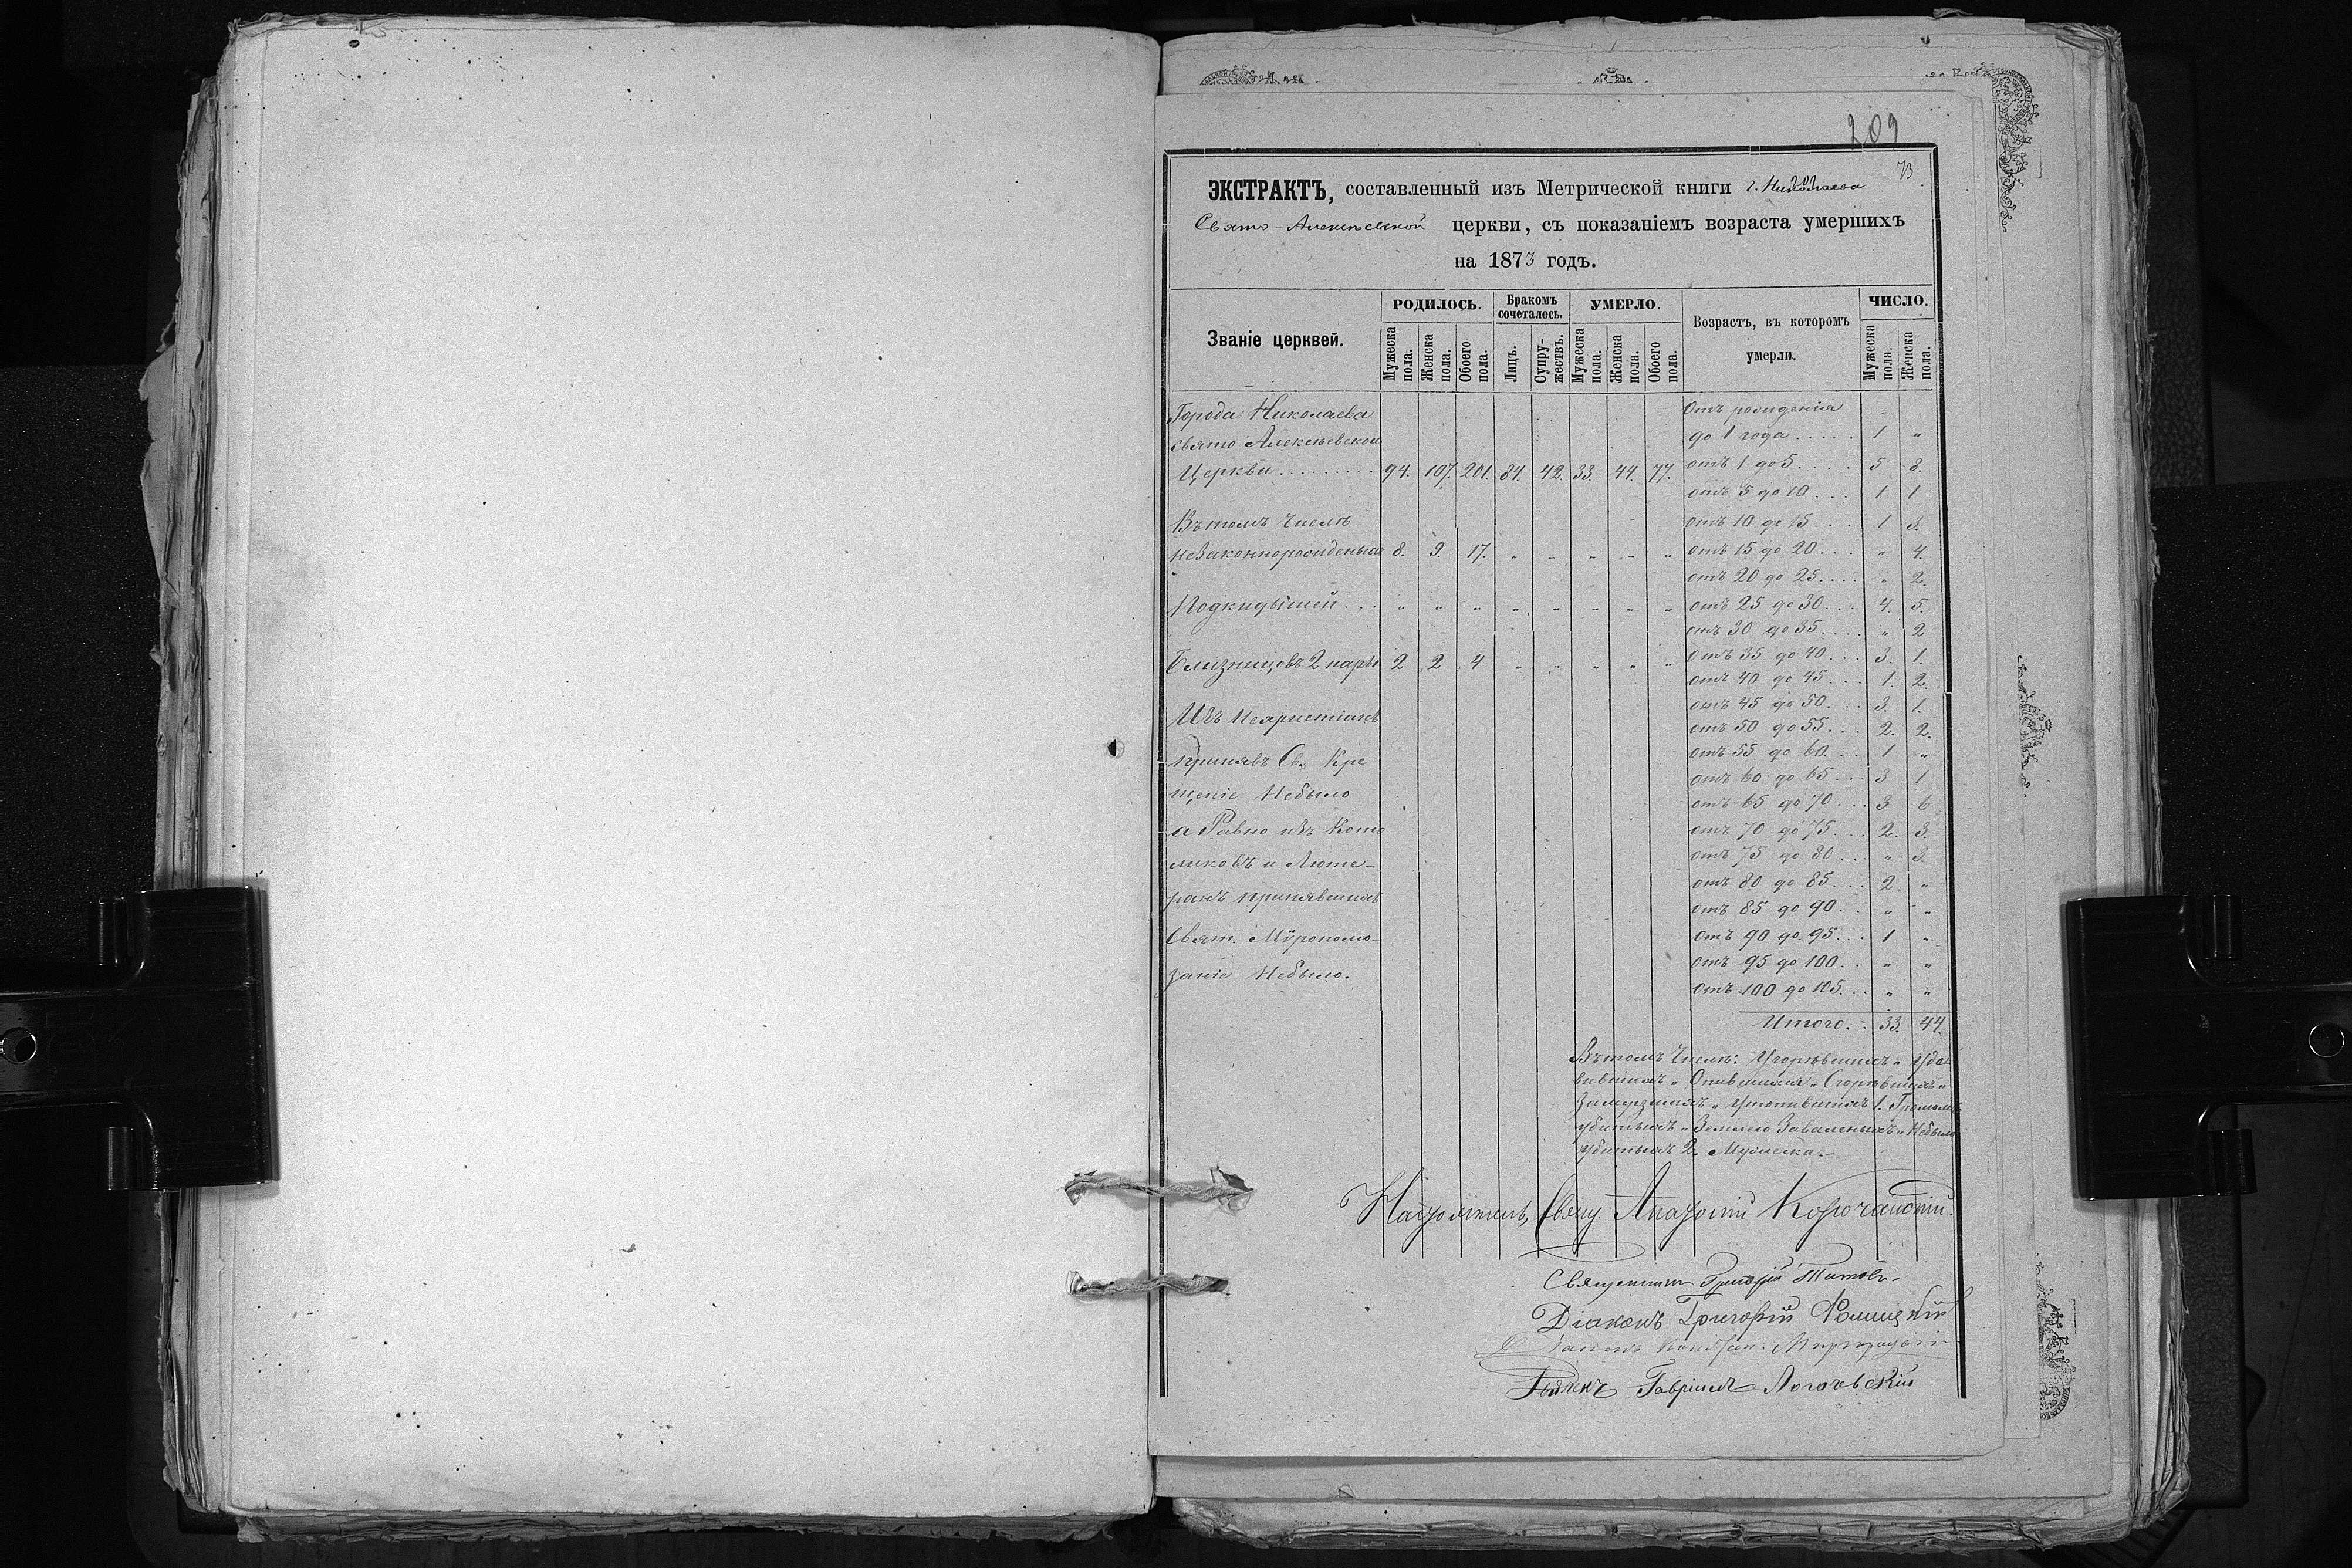 209
73
ЭКСТРАКТЪ, составленный изъ Метрической книги г. Николаева
Свято-Алексѣевской церкви, съ показаніемъ возраста умершихъ
на 1873 годъ.
Званіе церквей.
РОДИЛОСЬ.
Мужеска пола.
Женска пола.
Обоего пола.
Бракомъ сочеталось.
Лицъ.
Супружествъ.
УМЕРЛО.
Мужеска пола.
Женска пола.
Обоего пола.
Возрастъ, въ которомъ
умерли.
ЧИСЛО.
Мужеска пола.
Женска пола.
Города Николаева
Свято Алексѣевской
Церкви......... 94. 107. 201. 84. 42. 33. 44. 77.
Въ томъ Числѣ
незаконнорожденыхъ 8. 9. 17. " " " " "
Подкидышей... " " " " " " " "
Близницовъ 2 пары 2 2 4 " " " " "
Изъ Нехристіянъ
принявъ Св. Кре
щеніе Небыло
а Равно изъ Като
ликовъ и Люте-
ранъ принявшихъ
Свят. Мѵропома-
заніе Небыло.
Отъ рожденія
до 1 года..... 1 "
отъ 1 до 5.... 5 8.
отъ 5 до 10... 1 1
отъ 10 до 15... 1 3.
отъ 15 до 20... " 4.
отъ 20 до 25.... " 2.
отъ 25 до 30... 4. 5.
отъ 30 до 35.... " 2
отъ 35 до 40... 3. 1.
отъ 40 до 45... 1. 2.
отъ 45 до 50... 3. 1.
отъ 50 до 55... 2. 2.
отъ 55 до 60... 1 "
отъ 60 до 65... 3 1
отъ 65 до 70... 3 6
отъ 70 до 75... 2. 3.
отъ 75 до 80... " 3.
отъ 80 до 85... 2 "
отъ 85 до 90... " "
отъ 90 до 95... 1 "
отъ 95 до 100.. " "
отъ 100 до 105... " "
Итого... 33. 44.
Въ томъ Числѣ: Угорѣвшихъ " Уда
вившихъ " Опившихся " Сгорѣвшихъ "
Замерзшихъ " Утопившихъ 1. Громомъ
убитыхъ " Землею Заваленыхъ " Небыло
убитыхъ 2. Мужеска.-
Настоятель, Свящ.
Священникъ Григорій Титовъ.
Діаконъ Григорій
Гавріилъ